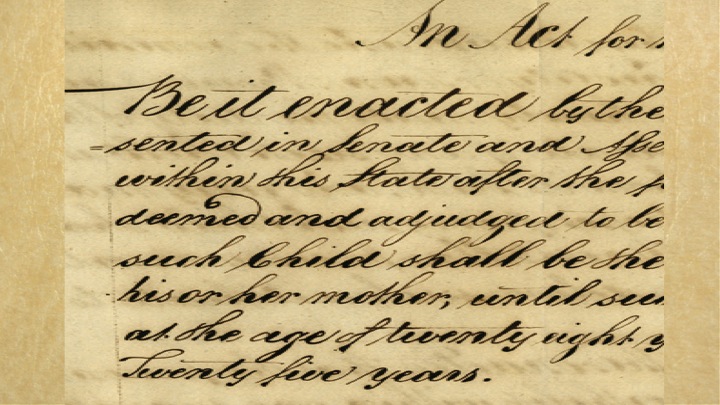 An Act for
Be it enacted by the
=sented in Senate and Asse
within this State after the
deemed and adjudged to be
such Child shall be the
his or her mother, until suc
at the age of twenty eight y
Twenty five years.